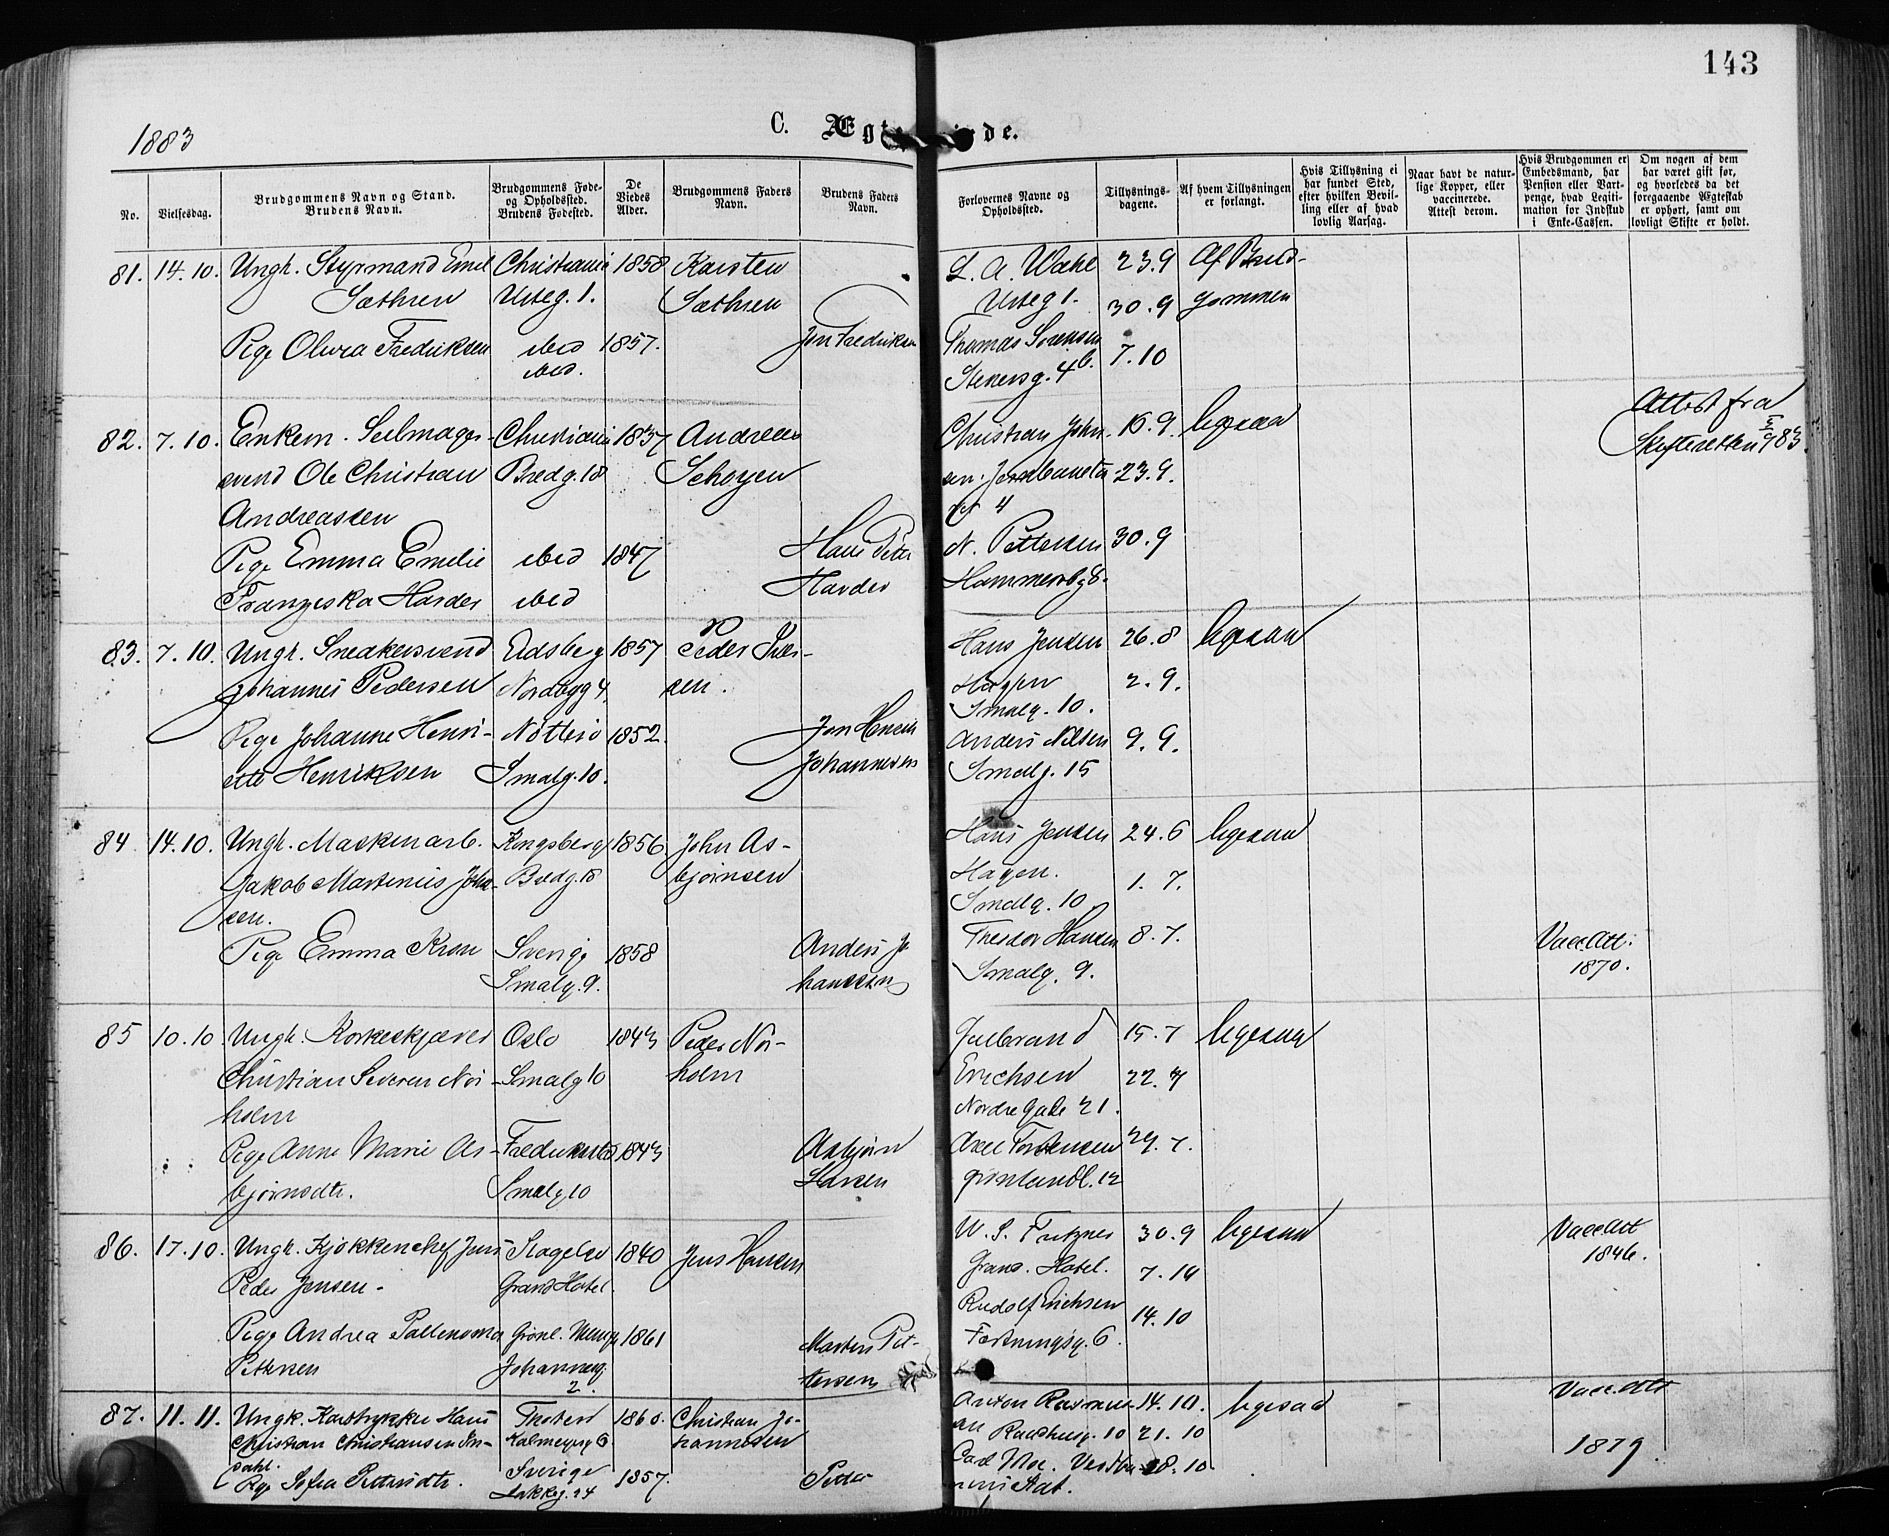 143
1883
C. Ægt
de.
No.
Vielsesdag.
Brudgommens Navn og Stand.
Brudens Navn.
Brudgommens Føde-
og Opholdssted.
Brudens Fødested.
De
Viedes
Alder.
Brudgommens Faders
Navn.
Brudens Faders
Navn.
Forlovernes Navne og
Opholdssted.
Tillysnings-
dagene.
Af hvem Tillysningen
er forlangt.
Hvis Tillysning ei
har fundet Sted,
efter hvilken Bevil-
ling eller af hvad
lovlig Aarsag.
Naar havt de natur-
lige Kopper, eller
vaccinerede.
Attest derom.
Hvis Brudgommen er
Embedsmand, har
Pension eller Vart-
penge, hvad Legiti-
mation for Indskud
i Enke-Cassen.
Om nogen af dem
har været gift før,
og hvorledes da det
foregaaende Ægteskab
er ophørt, samt om
lovligt Skifte er holdt.
81. 14.10. Ungk. Styrmand Emil Christiania 1858 Karsten L. A. Wahl 23.9 Af Brud-
Sæthren Urteg. 1. Sæthren Urteg 1. 30.9 gommen
Pige Olivia Fredriksen ibid 1857. Jon Fredriksen Thomas Sørensen 7.10
ibid. Stenersg. 4 b.
82. 7.10. Enkem. Seilmager- Christiania 1837 Andreas Christian John- 16.9. ligesaa Attest fra
svend Ole Christian Bredg. 18 Schøyen sen. 23.9. Skifteretten 83.
Andreassen 4
Pige Emma Emilie ibid 1847 Hans Peter N. Pettersen 30.9
Franziska Harder ibid Harder Hammersbg 8.
83. 7.10. Ungk. Snedkersvend Edsberg 1857 Peder Hans Jensen 26.8 ligesaa
Johannes Pedersen Nordbyg 4. sen. Hagen 2.9.
Smalg. 10.
Pige Johanne Henri- Nøtterø 1852. Jon Anders Nilsen 9.9.
ette Henriksen Smalg. 10. Johannesen Smalg. 15
84 14.10. Ungk. Maskinarb. Kongsberg 1856 John As- Hans Jensen 24.6 ligesaa
Jakob Martinius Johan- Bredg. 18 bjørnsen Hagen. 1.7.
sen. Smalg. 10
Pige Emma Sverige 1858 Anders Jo Theodor Hansen 8.7. Vacc. Att:
Smalg. 9. hanssen Smalg. 9. 1870.
85 10.10 Ungk. Korkeskjærer Oslo 1843 Peder Nor- Gulbrand 15.7 ligesaa
Christian Severin Nor- Smalg 10 holm Erichsen 22.7
holm Nordre Gade 21.
Pige Anne Marie As- Frederikstad 1843 Asbjørn Axel Torstensen 29.7.
bjørnsdtr. Smalg 10 Larsen Grønlandsl. 12
86. 17.10. Ungk. Kjøkkenchef Jens Slagelse 1840 Jens Hansen W. S. Fritzner 30.9 ligesaa Vacc Att
Peder Jensen. Grand Hotel. Grand Hotel. 7.10 1846.
Pige Andrea Grønl. 1861 Morten Pet- Rudolf Erichsen 14.10
Pettersen Johannesg. tersen Fæstningsg. 6.
2.
87. 11.11. Ungk. Hans 1860. Christian Jo- Anton Rasmus- 14.10. ligesaa Vacc. Att
Christian Christiansen Calmeyerg 6 hannesen sen Raadhusg. 10 21.10 1879
dahl.
Pige Sofia Pettersdtr. Sverige 1857. Peder Carl Moe. 28.10.
Lakkeg. 24